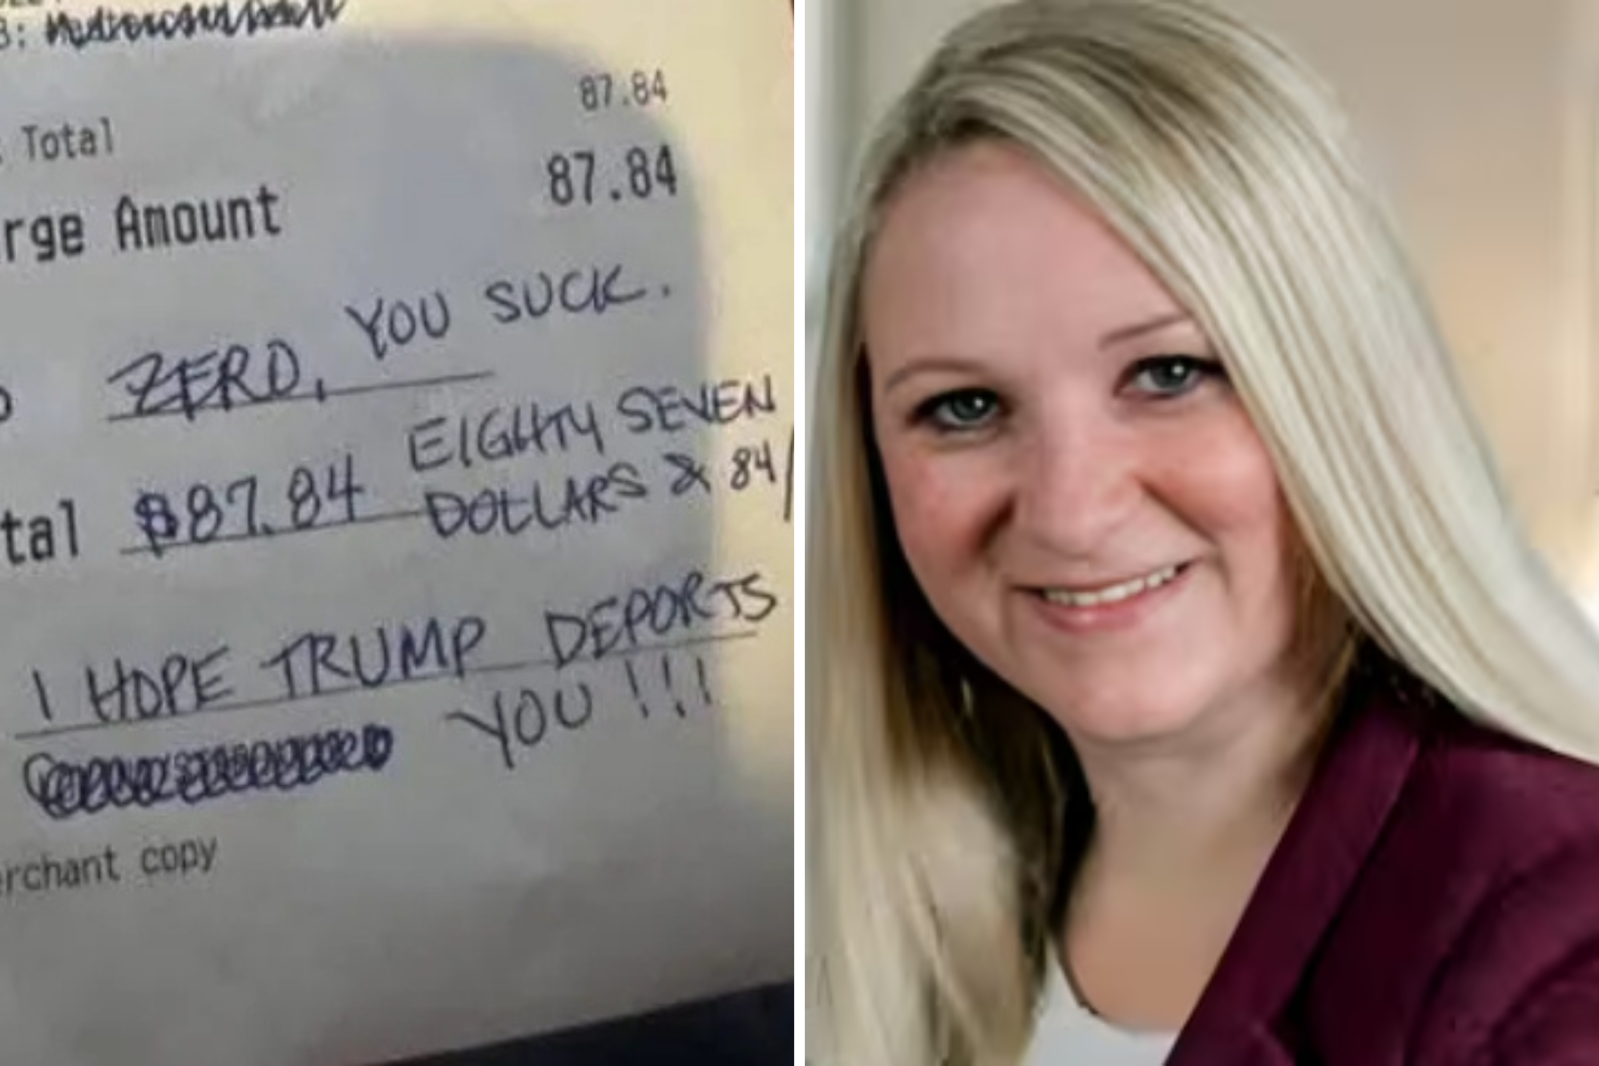 87.84
Total
rge Amount 87.84
ZERO, YOU SUCK.
tal $87.84 EIGHTY SEVEN
DOLLARS & 84/
I HOPE TRUMP DEPORTS
YOU!!!
erchant copy